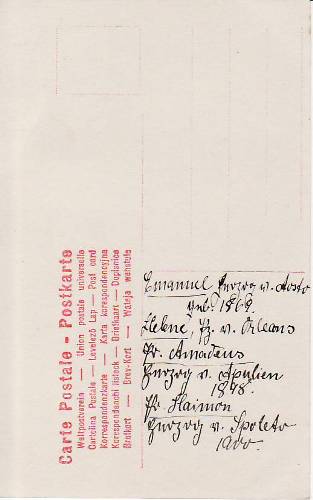 Carte Postale - Postkarte
Weltpostverein — Union postale universelle
Cartolina Postale — Levelező Lap — Post card
Korespondenzkarte — Karta korespondencyjna
Korespondenční lístek — Briefkaart — Dopisnice
Brefkort — Brev-Kort — Wateja wehstule
Emanuel Herzog v. Aosta
geb. 1869.
Helene, Pz. v. Orleans
Pr. Amadeus
Herzog v. Apulien
1898.
Pr. Haimon
Herzog v. Spoleto
1900.